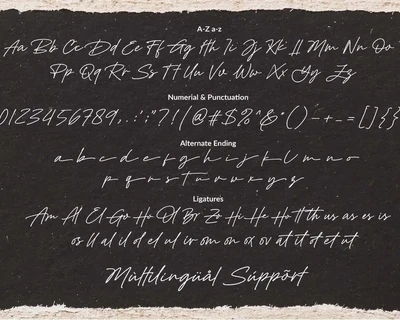 A-Z a-z
Aa Bb Cc Dd Ee Ff Gg Hh Ii Jj Kk Ll Mm Nn Oo
Pp Qq Rr Ss Tt Uu Vv Ww Xx Yy Zz
Numerial & Punctuation
0123456789,.:;"?![@#$%^&*()-+-=[]{}
Alternate Ending
a b c d e f g h i j k l m n o
p q r s t u v w x y z
Ligatures
Am Al El Go Ho Ol Br Zo Hi He Ho tt th us as es is
os ll al il dl el ul ir om on ox ov at it dt et ut
Mültilingüål Süppõrt